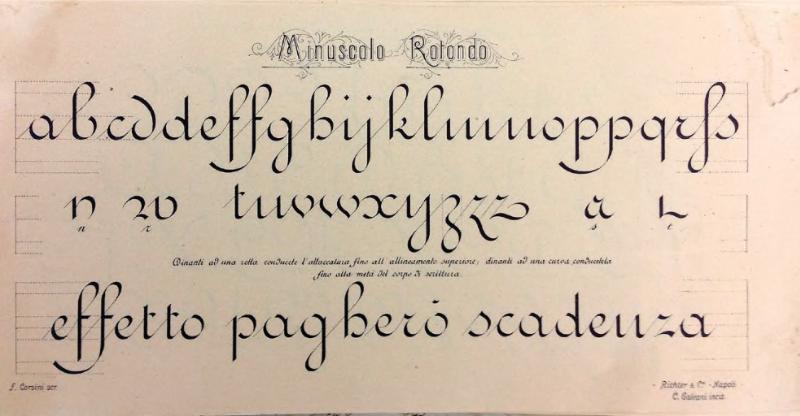 Minuscolo Rotondo
abcddeffghijklmnoppqrſs
n w tuvvwxyzzz a
Dinanti ad una retta conducete l'attaccatura fino all'allineamento superiore; dinanti ad una curva conducetela
fino alla metà del corpo di scrittura.
effetto pagherò scadenza
F. Corsini scr.
Richter & Cº. - Napoli
C. Galvani incis.